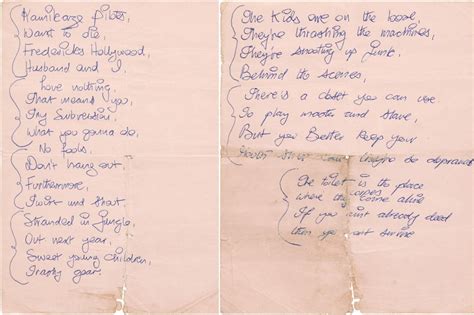 Kamikaze
Want to die,
Fredericks Hollywood,
Husband and I,
Love nothing,
That means you,
Try Subversion,
What you gonna do,
No fools,
Don't hang out,
Furthermore,
and that,
Stranded in Jungle,
Out next year,
Sweet young children,
Trashy gear.
The Kids are on the
They're thrashing the machines,
They're shooting up junk,
Behind the scenes,
There's a closet you can use
To play master and slave,
But you Better keep your
they're so depraved
The toilet is the place
where the come alive
If you aint already dead
then you wont survive